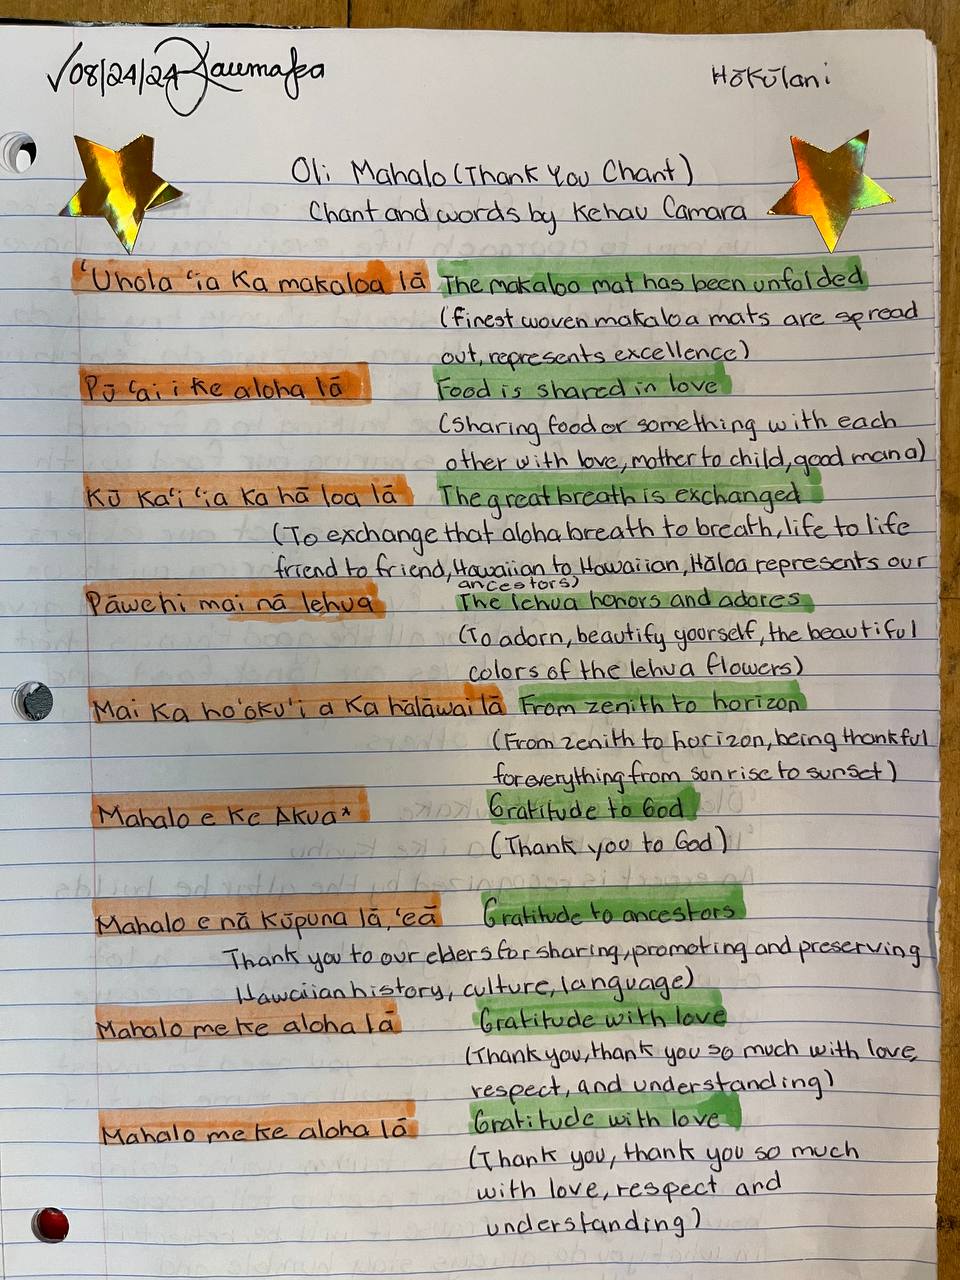 √08/24/24 Kaumaka
Hōkūlani
Oli Mahalo (Thank You Chant)
Chant and words by Kehau Camara
ʻUhola ʻia Ka makaloa lā The makaloa mat has been unfolded
(finest woven makaloa mats are spread
out, represents excellence)
Pū ʻai i ke aloha lā Food is shared in love
(Sharing food or something with each
other with love, mother to child, good mana)
Kū Kaʻi ʻia Ka hā loa lā The great breath is exchanged
(To exchange that aloha breath to breath, life to life
friend to friend, Hawaiian to Hawaiian, Hāloa represents our
ancestors)
Pāwehi mai nā lehua The lehua honors and adores
(To adorn, beautify yourself, the beautiful
colors of the lehua flowers)
Mai Ka hoʻokuʻi a Ka hālāwai lā From zenith to horizon
(From zenith to horizon, being thankful
for everything from sunrise to sunset)
Mahalo e Ke Akua* Gratitude to God
(Thank you to God)
Mahalo e nā Kūpuna lā, ʻeā Gratitude to ancestors
Thank you to our elders for sharing, promoting and preserving
Hawaiian history, culture, language)
Mahalo me ke aloha lā Gratitude with love
(Thank you, thank you so much with love,
respect, and understanding)
Mahalo me ke aloha lā Gratitude with love
(Thank you, thank you so much
with love, respect and
understanding)